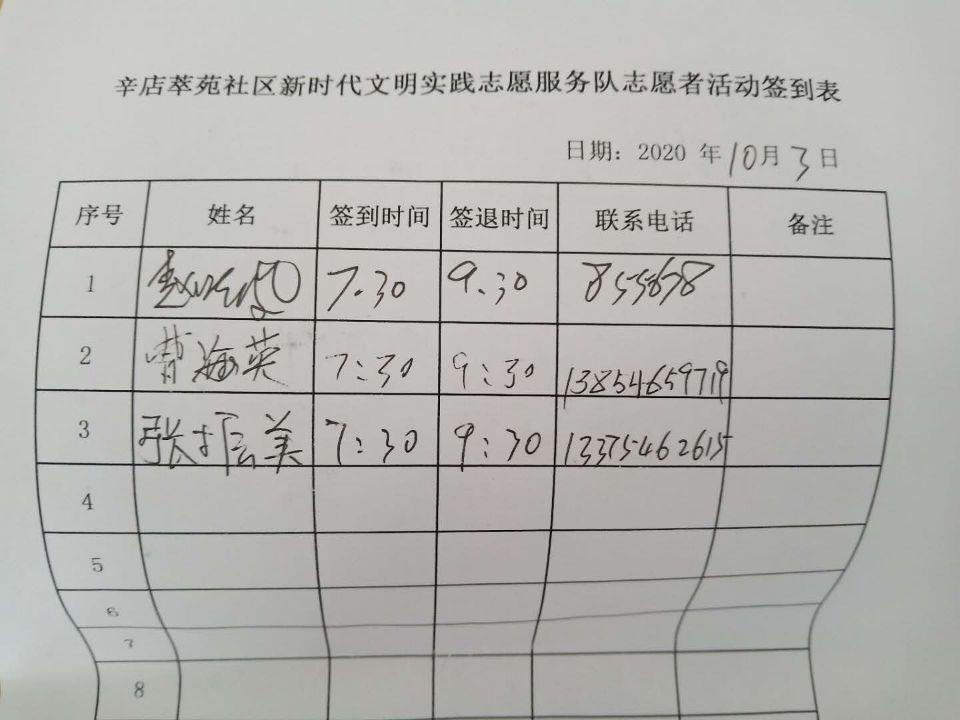 辛店萃苑社区新时代文明实践志愿服务队志愿者活动签到表
日期：2020 年10月3日
序号 姓名 签到时间 签退时间 联系电话 备注
1 赵 7.30 9.30
2 曹海英 7:30 9:30 13854659719
3 张振美 7:30 9:30 13375462615
4
5
6
7
8